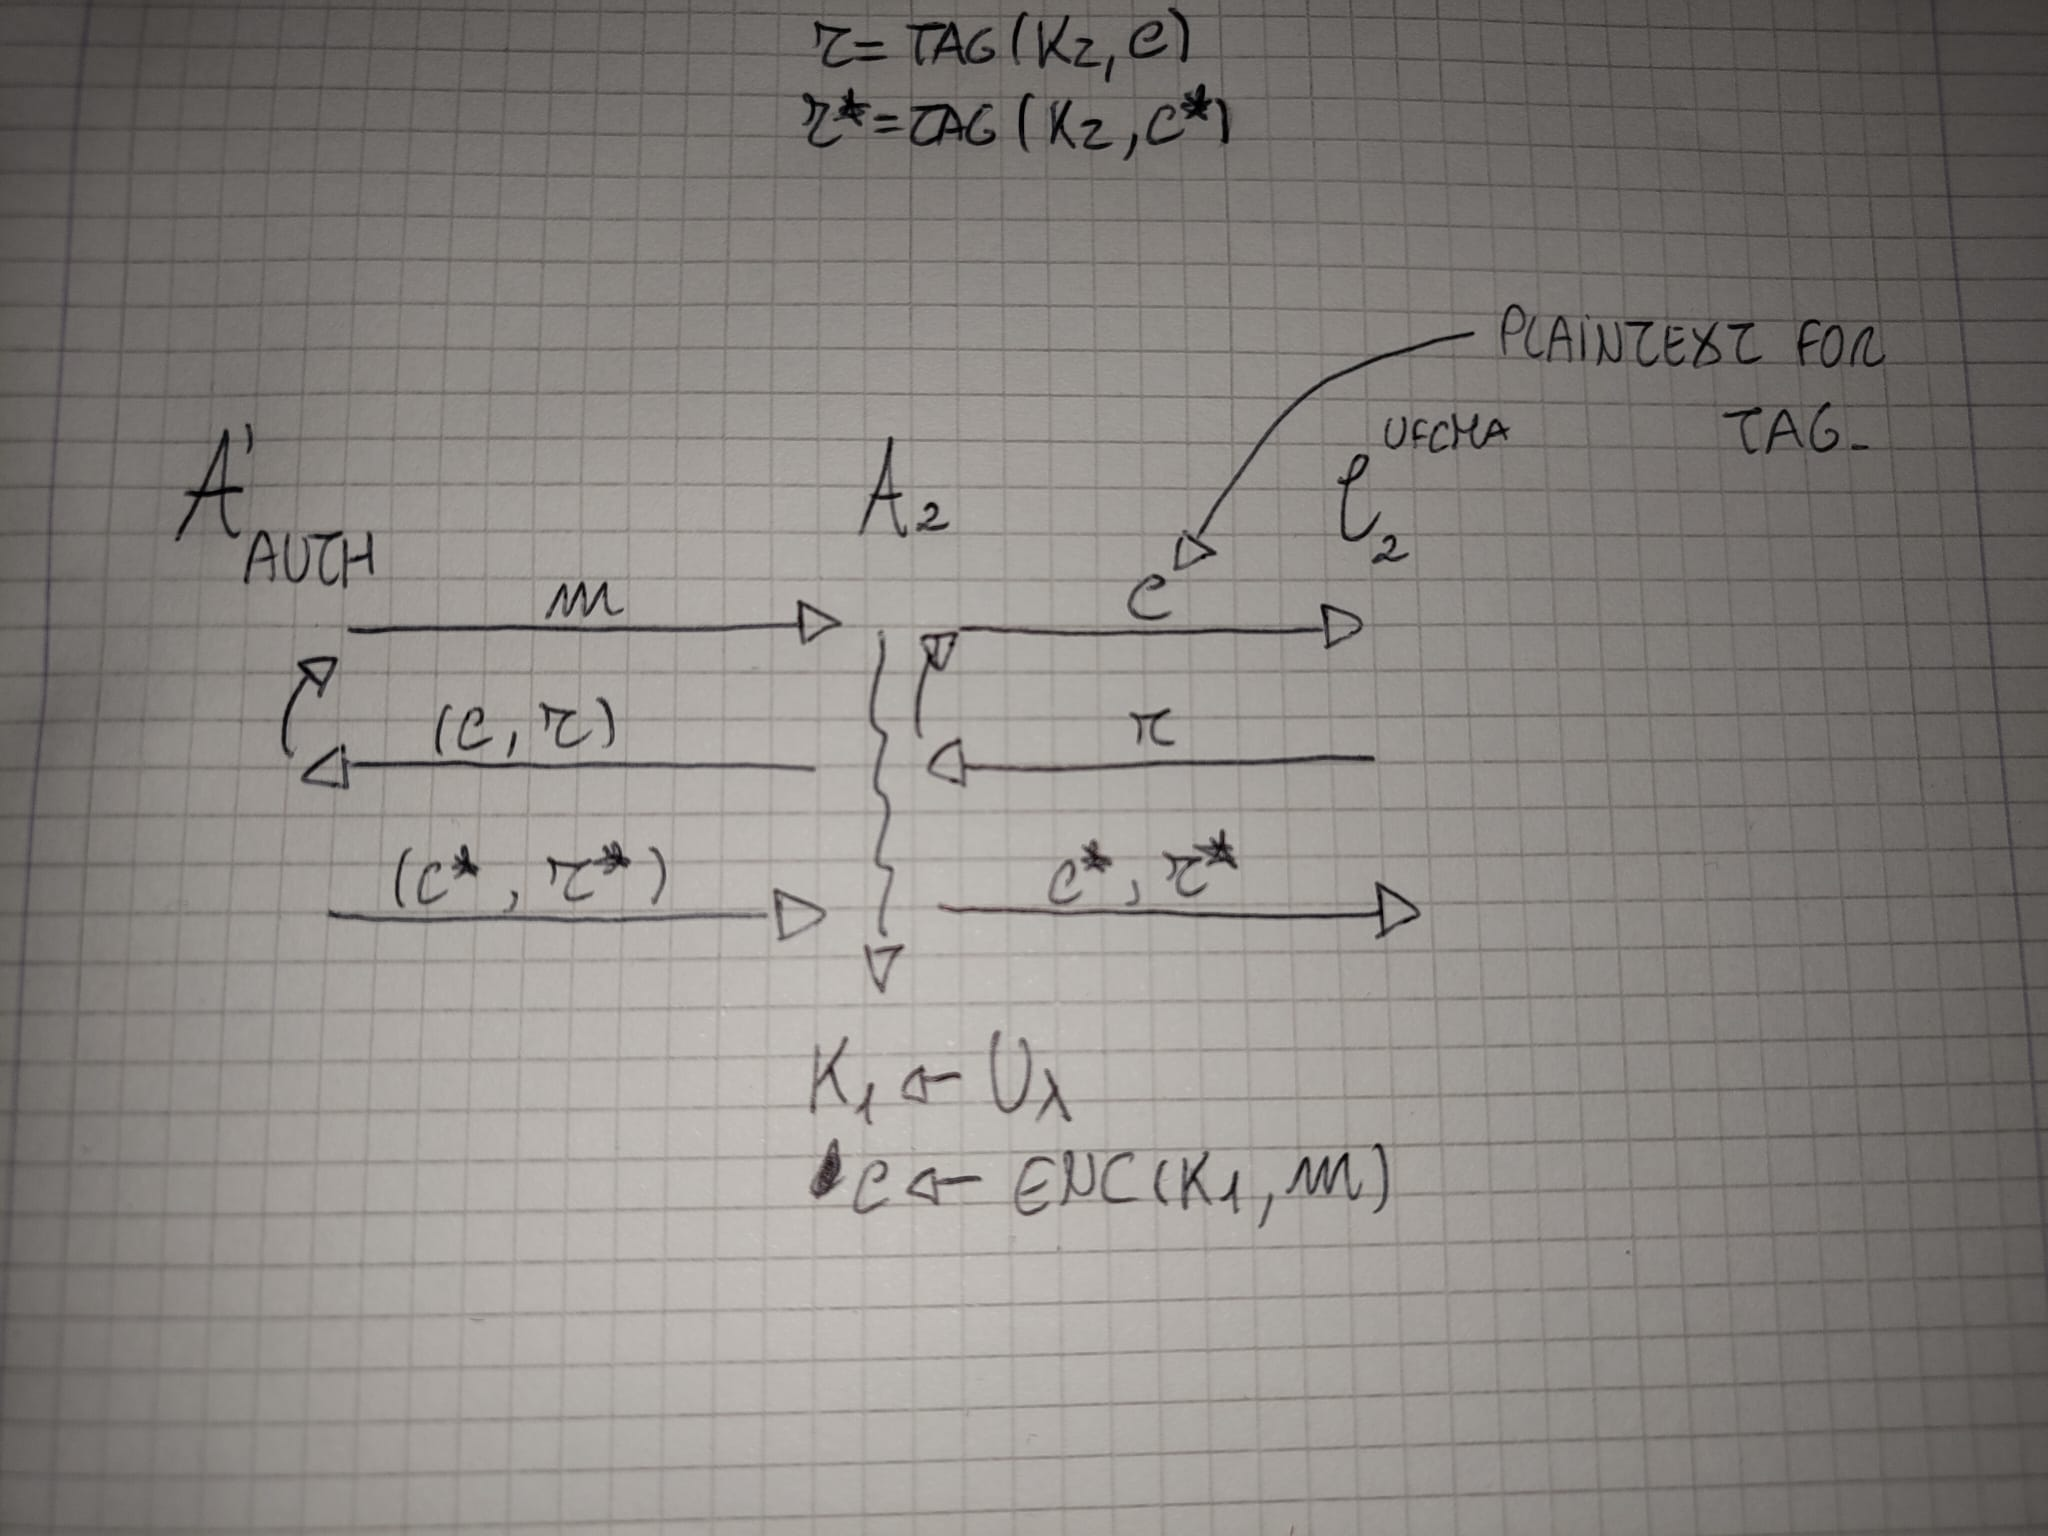 τ= TAG(K2, C)
τ*=TAG(K2, C*)
PLAINTEXT FOR
TAG-
A'AUTH
A2
C2 UFCMA
m
C
(C, τ)
τ
(C*, τ*)
C*, τ*
K1 ← Uλ
C ← ENC(K1, m)